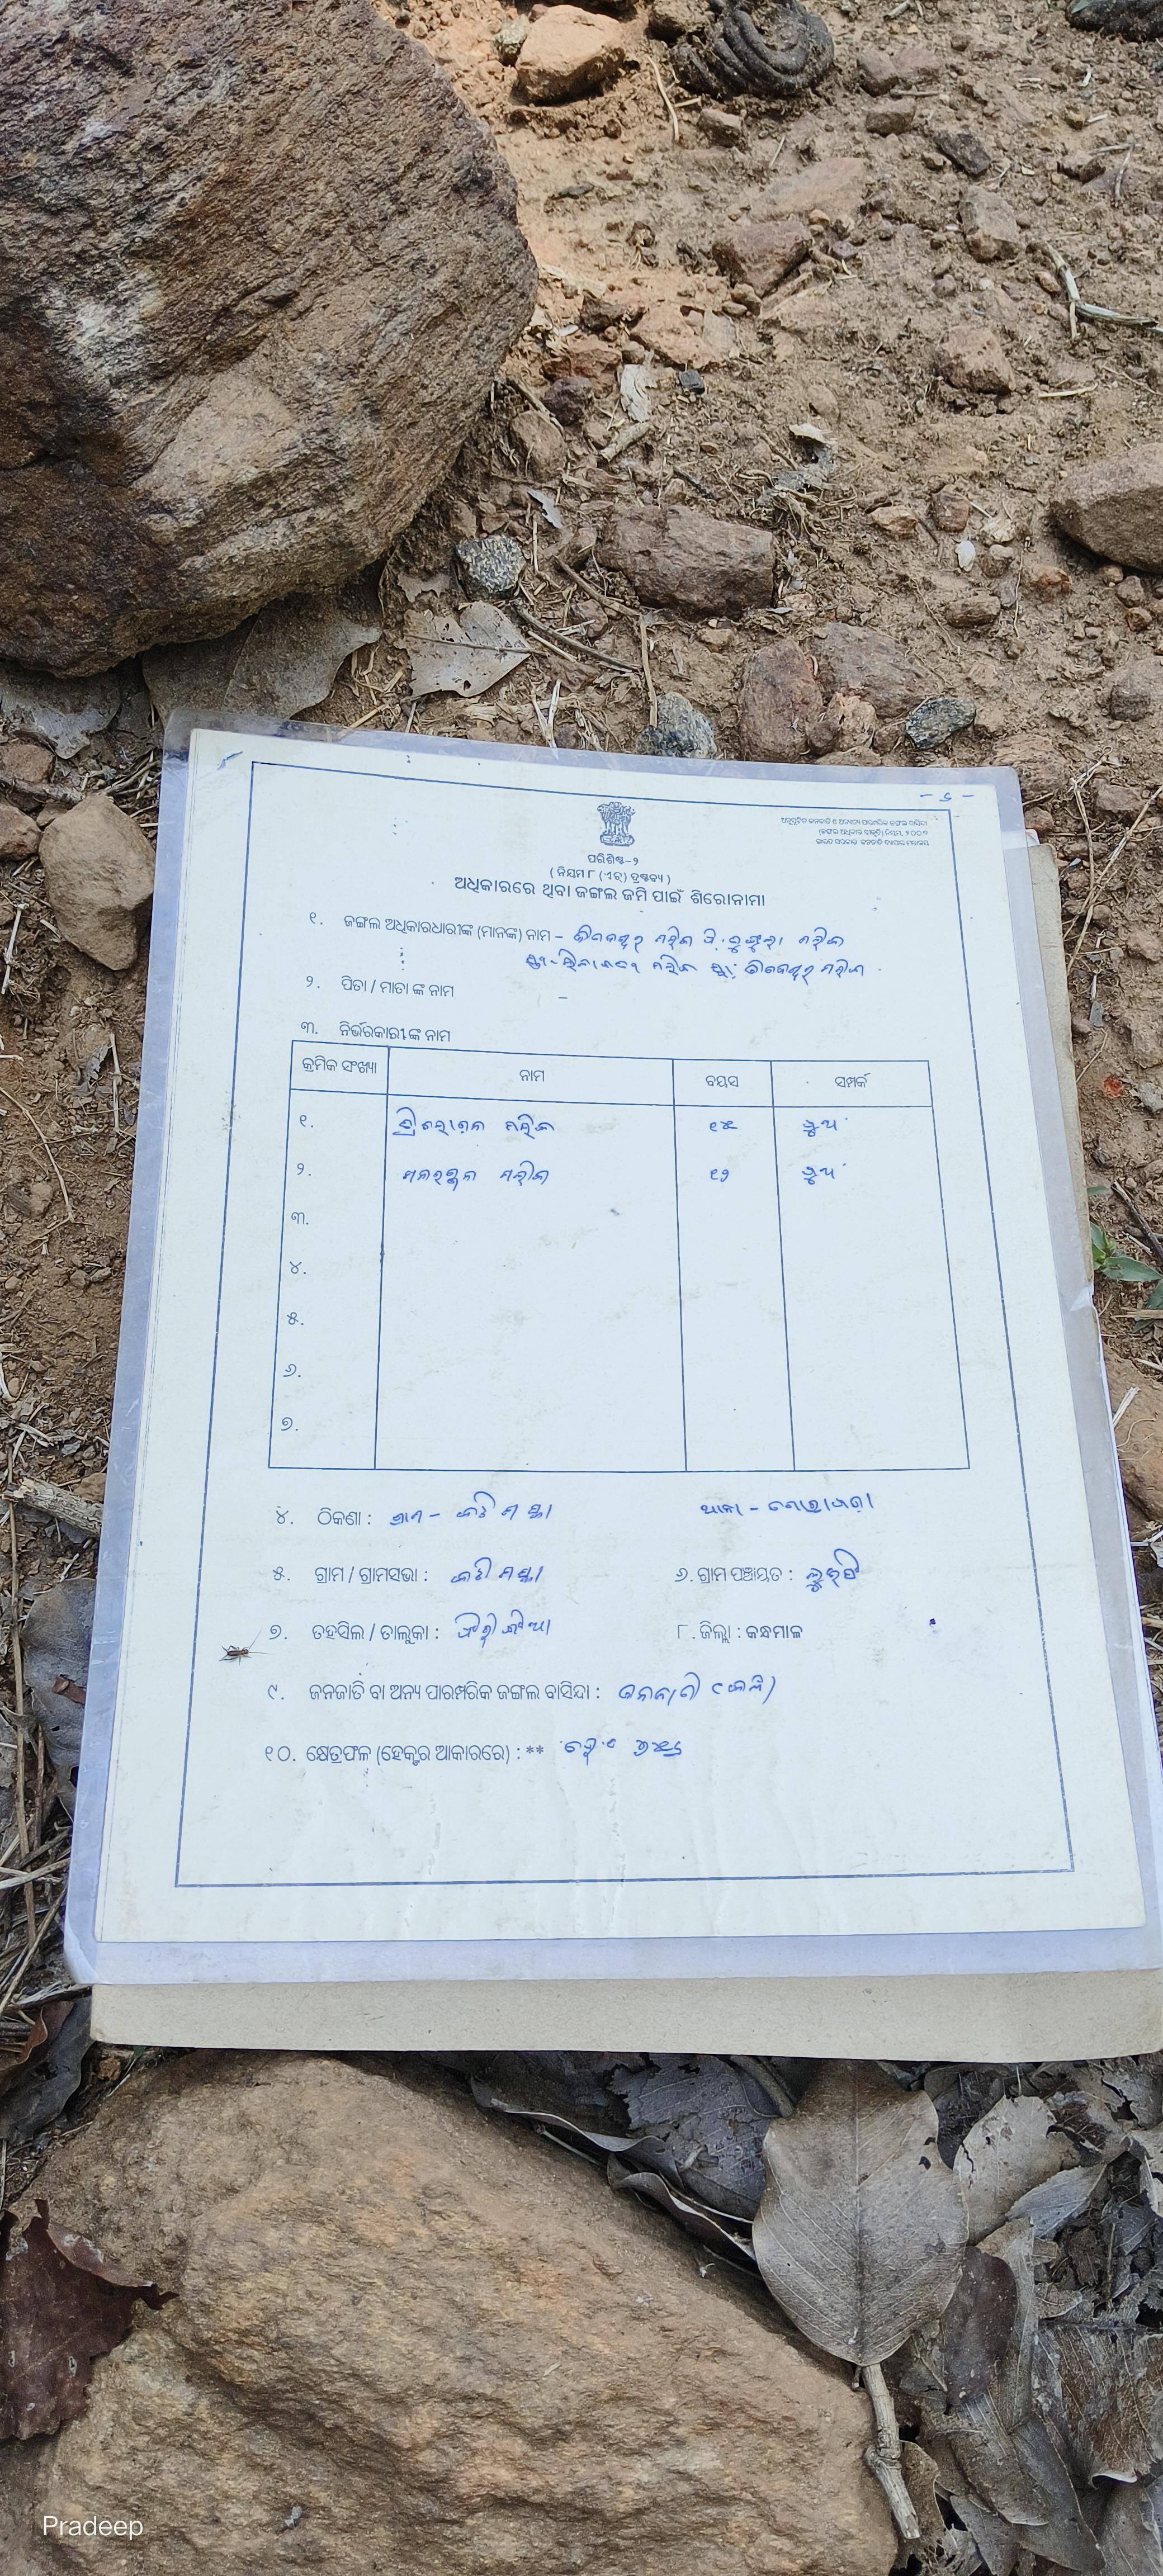 - ୨ -
ଅନୁସୂଚିତ ଜନଜାତି ଓ ଅନ୍ୟାନ୍ୟ ପାରମ୍ପରିକ ଜଙ୍ଗଲ ବାସିନ୍ଦା
(ଜଙ୍ଗଲ ଅଧିକାର ସ୍ୱୀକୃତି) ନିୟମ, ୨୦୦୭
ଭାରତ ସରକାର ଜନଜାତି ବ୍ୟାପାର ମନ୍ତ୍ରାଳୟ
ପରିଶିଷ୍ଟ-୨
( ନିୟମ ୮ (ଏଚ୍) ଦ୍ରଷ୍ଟବ୍ୟ )
ଅଧିକାରରେ ଥିବା ଜଙ୍ଗଲ ଜମି ପାଇଁ ଶିରୋନାମା
୧. ଜଙ୍ଗଲ ଅଧିକାରଧାରୀଙ୍କ (ମାନଙ୍କ) ନାମ – ମଲିକ ମଲିକ
ମଲିକ ମଲିକ
୨. ପିତା / ମାତା ଙ୍କ ନାମ –
୩. ନିର୍ଭରକାରୀଙ୍କ ନାମ
କ୍ରମିକ ସଂଖ୍ୟା ନାମ ବୟସ ସମ୍ପର୍କ
୧. ତ୍ରିଲୋଚନ ମଲିକ ୧୫ ପୁଅ
୨. ମନରଞ୍ଜନ ମଲିକ ୧୨ ପୁଅ
୩.
୪.
୫.
୬.
୭.
୪. ଠିକଣା : ଗ୍ରାମ - ଥାନା -
୫. ଗ୍ରାମ / ଗ୍ରାମସଭା : ୬. ଗ୍ରାମ ପଞ୍ଚାୟତ :
୭. ତହସିଲ / ତାଲୁକା : ଫିରିଙ୍ଗିଆ ୮. ଜିଲ୍ଲା : କନ୍ଧମାଳ
୯. ଜନଜାତି ବା ଅନ୍ୟ ପାରମ୍ପରିକ ଜଙ୍ଗଲ ବାସିନ୍ଦା : ଜନଜାତି
୧୦. କ୍ଷେତ୍ରଫଳ (ହେକ୍ଟର ଆକାରରେ) : **
Pradeep